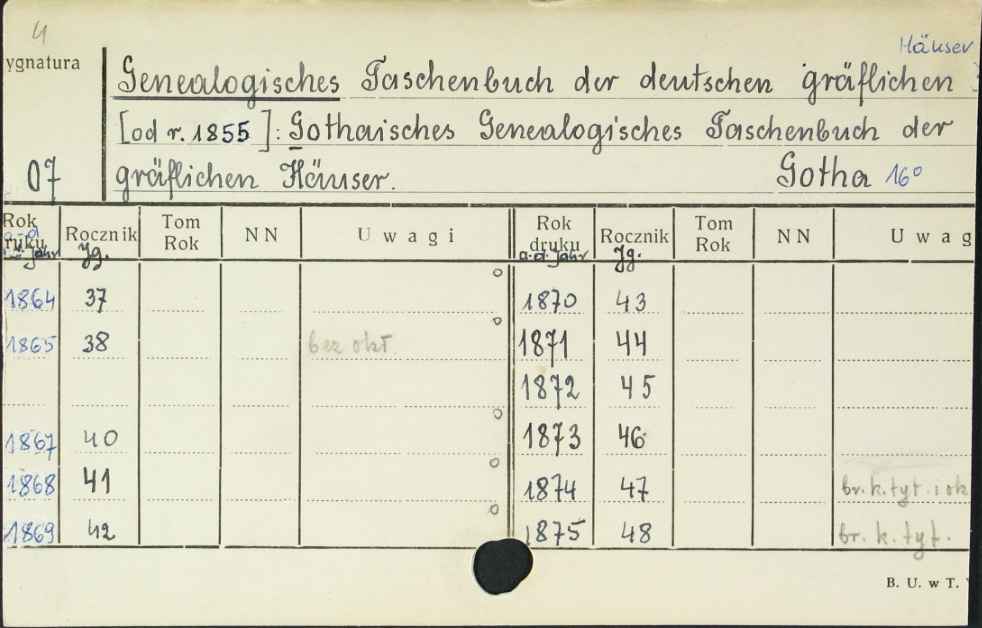 4
Häuser
ygnatura
Genealogisches Taschenbuch der deutschen gräflichen
[od r. 1855]: Gothaisches Genealogisches Taschenbuch der
07 gräflichen Häuser. Gotha 16°
Rok druku a.d. Jahr Rocznik Jg. Tom Rok NN Uwagi Rok druku a.d. Jahr Rocznik Jg. Tom Rok NN Uwag
1864 37 1870 43
1865 38 bez okł. 1871 44
1872 45
1867 40 1873 46
1868 41 1874 47 br. k. tyt. i ok
1869 42 1875 48 br. k. tyt.
B. U. w T.